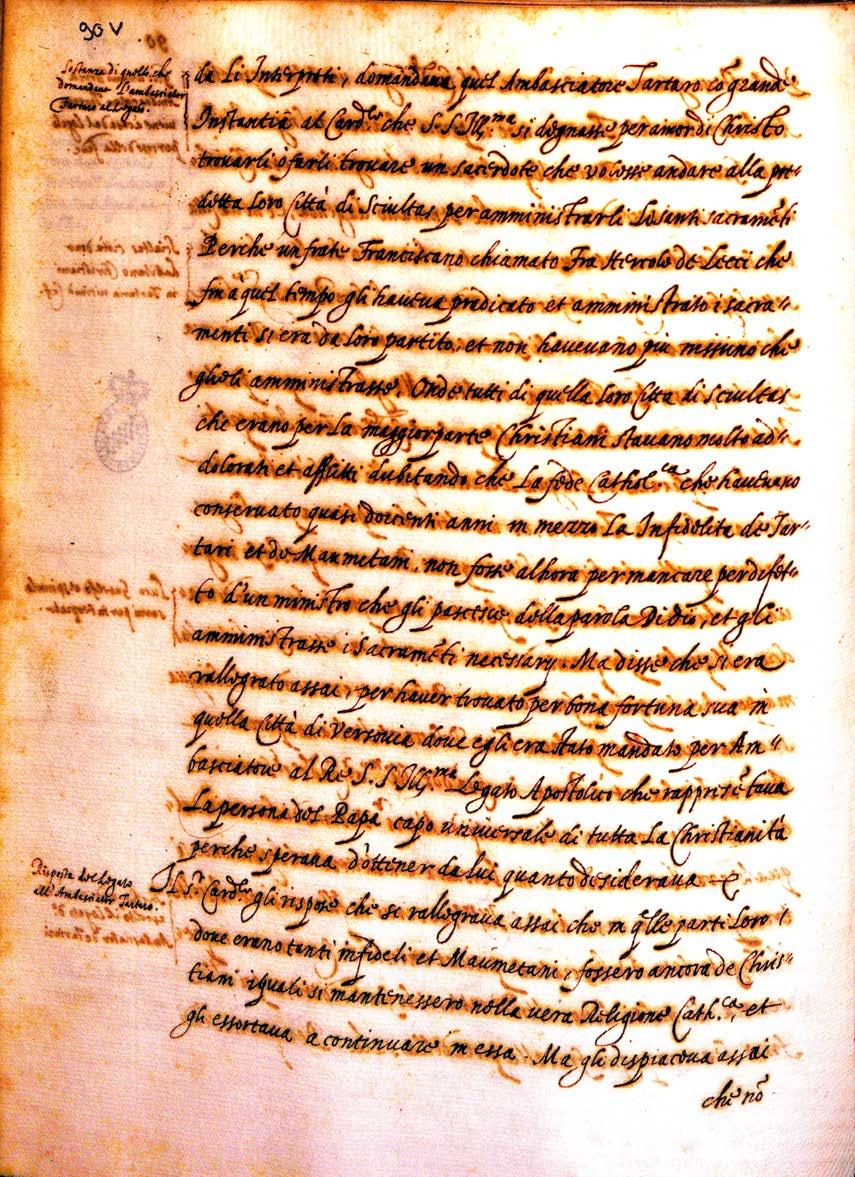 90 V
Sostanza di quello che
domandava l'ambasciator
Tartaro al Legato.
da li Interpreti, domandava quel Ambasciatore Tartaro cõ grande
Instantia al Card.le che S. S. Ill.ma si degnasse per amor di Christo
trovarli ò farli trovare un sacerdote che volesse andare alla pre-
detta loro Città di Sciultas per amministrarli Li santi sacramẽti
Perche un frate Franciscano chiamato Fra Hercole de Lecci che
fin à quel tempo gli haveva predicato et amministrato i sacra-
menti si era da loro partito, et non havevano piu nissuno che
gleli amministrasse. Onde tutti di quella loro Citta di Sciultas
che erano per la maggior parte Christiani stavano molto ad-
dolorati et afflitti dubitando che La fede Cathol.ca che havevano
conservato quasi doicenti anni in mezzo La Infidelita de Tar-
tari et de Maumetani, non fosse alhora per mancare per difet-
to d'un ministro che gli pascesse della parola Di dio, et gli
amministrasse i sacramẽti necessary. Ma disse che si era
rallegrato assai, per haver trovato per bona fortuna sua in
quella Città di Versovia dove egli era stato mandato per Am-
basciatore al Re S. S. Ill.ma Legato Apostolico che rappresẽtava
La persona del Papa capo universale di tutta La Christianità
perche sperava d'ottener da lui quanto desiderava
Risposta del Legato
all'Ambasciator Tartaro.
Il S.r Card.le gli rispose che si rallegrava assai che in q̃lle parti loro
dove erano tanti infideli et Maumetani, fossero ancora de Chris-
tiani iquali si mantenessero nella vera Religione Cath.ca, et
gli essortava a continuare in essa. Ma gli dispiaceva assai
che nõ